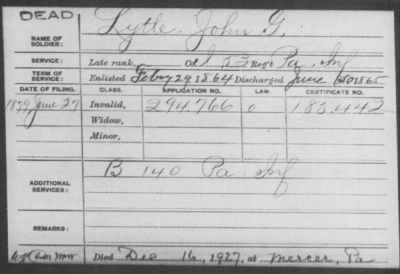 DEAD
NAME OF SOLDIER: Lytle, John G.
SERVICE: Late rank, Co. I, 53 Reg't Pa. Inf
TERM OF SERVICE: Enlisted Feby 29, 1864 Discharged June 1865
DATE OF FILING. CLASS. APPLICATION NO. LAW. CERTIFICATE NO.
1879 June 27 Invalid, 294.766 183.442
Widow,
Minor,
ADDITIONAL SERVICES: B 140 Pa Inf
REMARKS:
Died Dec 16, 1927, at Mercer, Pa